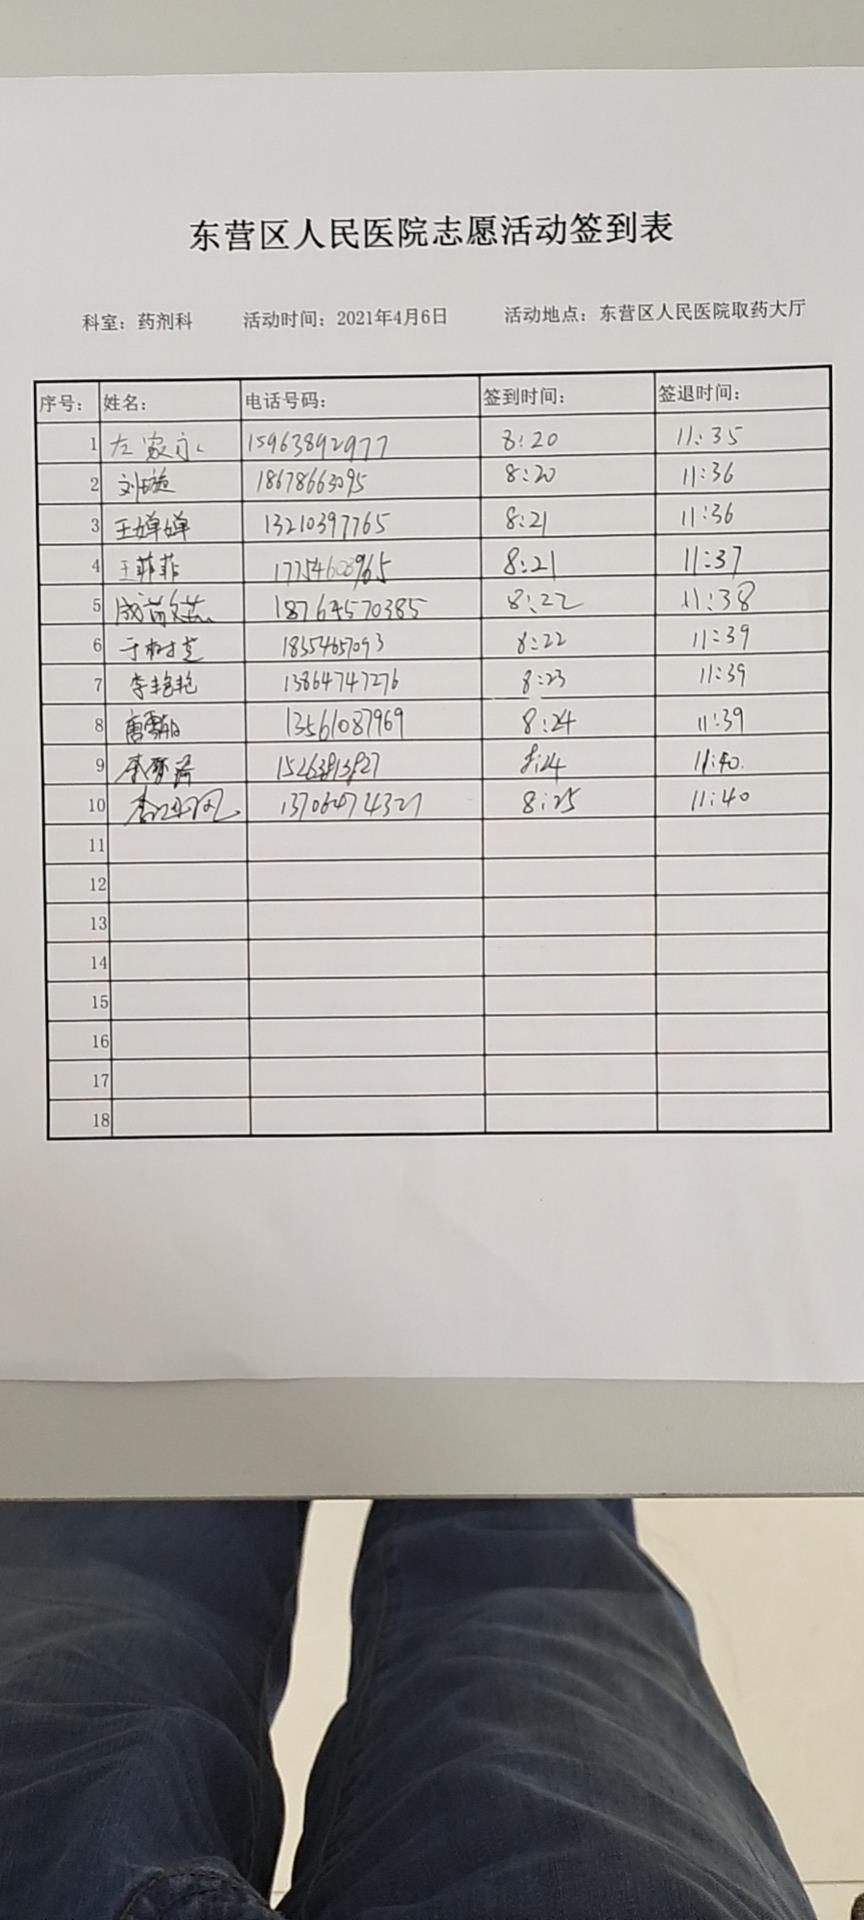 东营区人民医院志愿活动签到表
科室：药剂科 活动时间：2021年4月6日 活动地点：东营区人民医院取药大厅
序号： 姓名： 电话号码： 签到时间： 签退时间：
1 左家永 15963892977 8:20 11:35
2 刘璇 18678663095 8:20 11:36
3 王婵婵 13210397765 8:21 11:36
4 王菲菲 17754608965 8:21 11:37
5 18764570385 8:22 11:38
6 于树芝 18354657093 8:22 11:39
7 李艳艳 13864747276 8:23 11:39
8 13561087969 8:24 11:39
9 8:24 11:40.
10 8:25 11:40
11
12
13
14
15
16
17
18